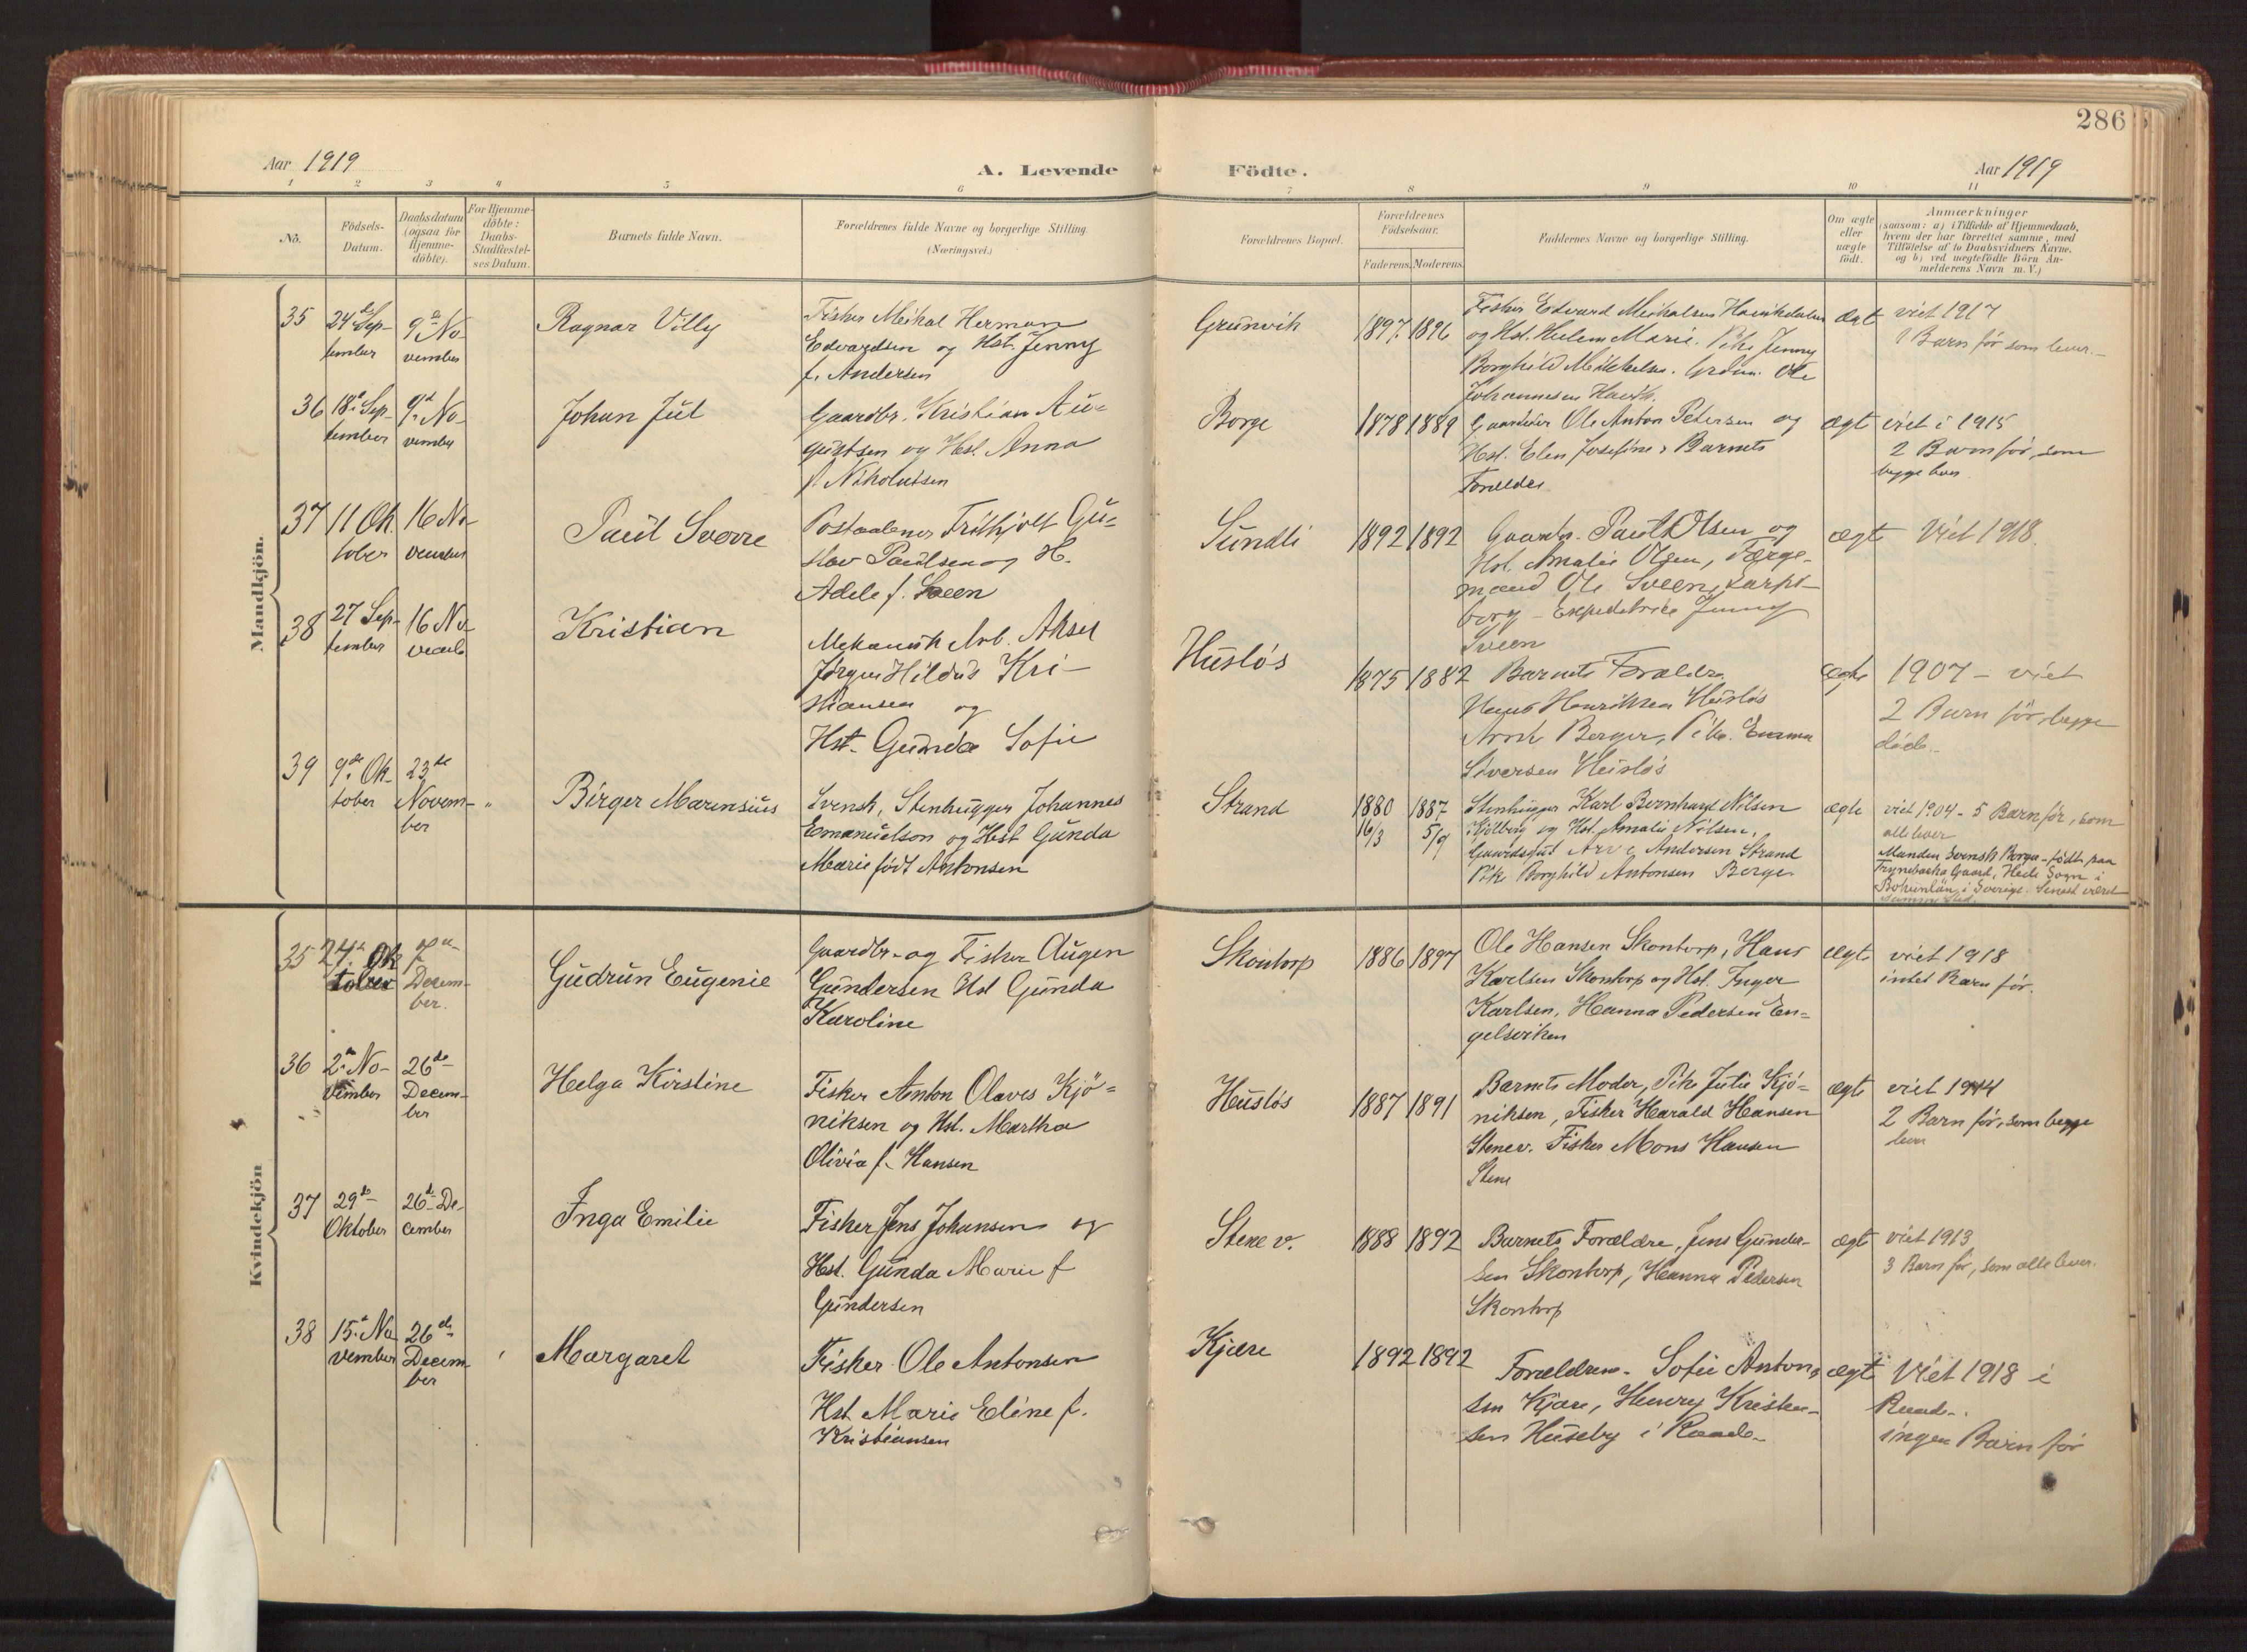 286
Aar 1919
A. Levende
Födte.
Aar 1919
1 2 3 4 5 6 7 8 9 10 11
No.
Födsels-
Datum.
Daabsdatum
(ogsaa for
Hjemme-
döbte).
For Hjemme-
döbte:
Daabs-
Stadfæstel-
ses Datum.
Barnets fulde Navn.
Forældrenes fulde Navne og borgerlige Stilling.
(Næringsvei.)
Forældrenes Bopæl.
Forældrenes
Födselsaar.
Faderens. Moderens.
Faddernes Navne og borgerlige Stilling.
Om ægte
eller
uægte
födt.
Anmærkninger
(saasom: a) i Tilfælde af Hjemmedaab,
hvem der har forrettet samme, med
Tilföielse af to Daabsvidners Navne.
og b) ved uægtefödte Börn An-
melderens Navn m. V.)
Mandkjön.
35
24de Sep-
tember
9de No-
vember
Ragnar Villy
Fisker Meikal Herman
Edvardsen og Hst. Jenny
f. Andersen
Grünvik
1897. 1896
Fisker Edvard Meikalsen
og Hst. Helene Marie. Pike Jenny
Borghild Ole
Johannesen
ægt
viet 1917
1 Barn før som lever.
36
18de Sep-
tember
9de No-
vember
Johan Jül
Gaardbr. Kristian Aü-
güstsen og Hst. Anna
f. Nikolaisen
Borge
1878 1889
Gaardbr Ole Anton Petersen og
Hst. Elen Josefine, Barnets
Forældre
ægt
viet i 1915
2 Barn før, som
begge lever
37
11 Ok-
tober
16 No-
vember
Paül Sverre
Postaabner Frithjolf Gü-
stav Paülsen og H.
Adele f. Sveen
Sündli
1892 1892
Gaardbr. Paül Olsen og
Hst. Amalie Olsen, Færge-
mand Ole Sveen, Sarps-
borg - Expeditrice Jenny
Sveen
ægt
Viet 1918.
38
27 Sep-
tember
16 No-
vemb
Kristian
Mekanisk Arb. Aksel
Jørgen Hildüs Kri-
stiansen og
Hst. Günda Sofie
Hüsløs
1875 1882
Barnets Forældre
Hans Henriksen Hüsløs
Berger, Pike Emma
Siversen Hüsløs
ægte
1907 - viet
2 Barn før, begge
døde.
39
9de Ok-
tober
23de
Novem-
ber
"
Birger Marensiüs
Svensk, Stenhügger Johannes
Emanüelson og Hst Günda
Marie født Antonsen
Strand
1880 1887
16/3 5/9
Stenhügger Karl Bernhard Nilsen
Kjølberg og Hst. Amalie Nilsen,
Gaardsgüt Arve Andersen Strand
Pike Borghild Antonsen Borge
ægte
viet 1904 - 5 Barn før, som
alle lever
Manden svensk Borger - født paa
Gaard, Hede Sogn i
Bohuslän, i Sverige. Senest værd
samme Sted.
Kvindekjön
35
24de Ok
tober
7de
Decem-
ber.
Güdrün Eügenie
Gaardbr- og Fisker Aügen
Gündersen Hst Günda
Karoline
Skontorp
1886 1897
Ole Hansen Skontorp, Hans
Karlsen Skontorp og Hst. Inger
Karlsen, Hanna Pedersen En-
gelsviken
ægt
viet 1918
intet Barn før.
36
2den No-
vember
26de
Decem-
ber
Helga Kirstine
Fisker Anton Olaves Kjö-
niksen og Hst. Martha
Olivia f. Hansen
Hüsløs
1887 1891
Barnets Moder, Pike Jülie Kjö-
niksen, Fisker Harald Hansen
Stenev. Fisker Mons Hansen
Stene
ægt
viet 1914
2 Barn før, som begge
lever
37
29de
Oktober
26de De-
cember
Inga Emilie
Fisker Jens Johansen og
Hst. Günda Marie f
Gündersen
Stene v.
1888 1892
Barnets Forældre, Jens Günder-
sen Skontorp, Hanna Pedersen
Skontorp
ægt
viet 1913
3 Barn før, som alle lever.
38
15de No-
vember
26de
Decem-
ber
Margaret
Fisker Ole Antonsen
Hst. Marie Eline f.
Kristiansen
Kjære
1892 1892
Forældrene - Sofie Anton-
sen Kjære, Henry Kristen-
sen Hüseby i Raade
ægt
Viet 1918 i
Raade.
ingen Barn før